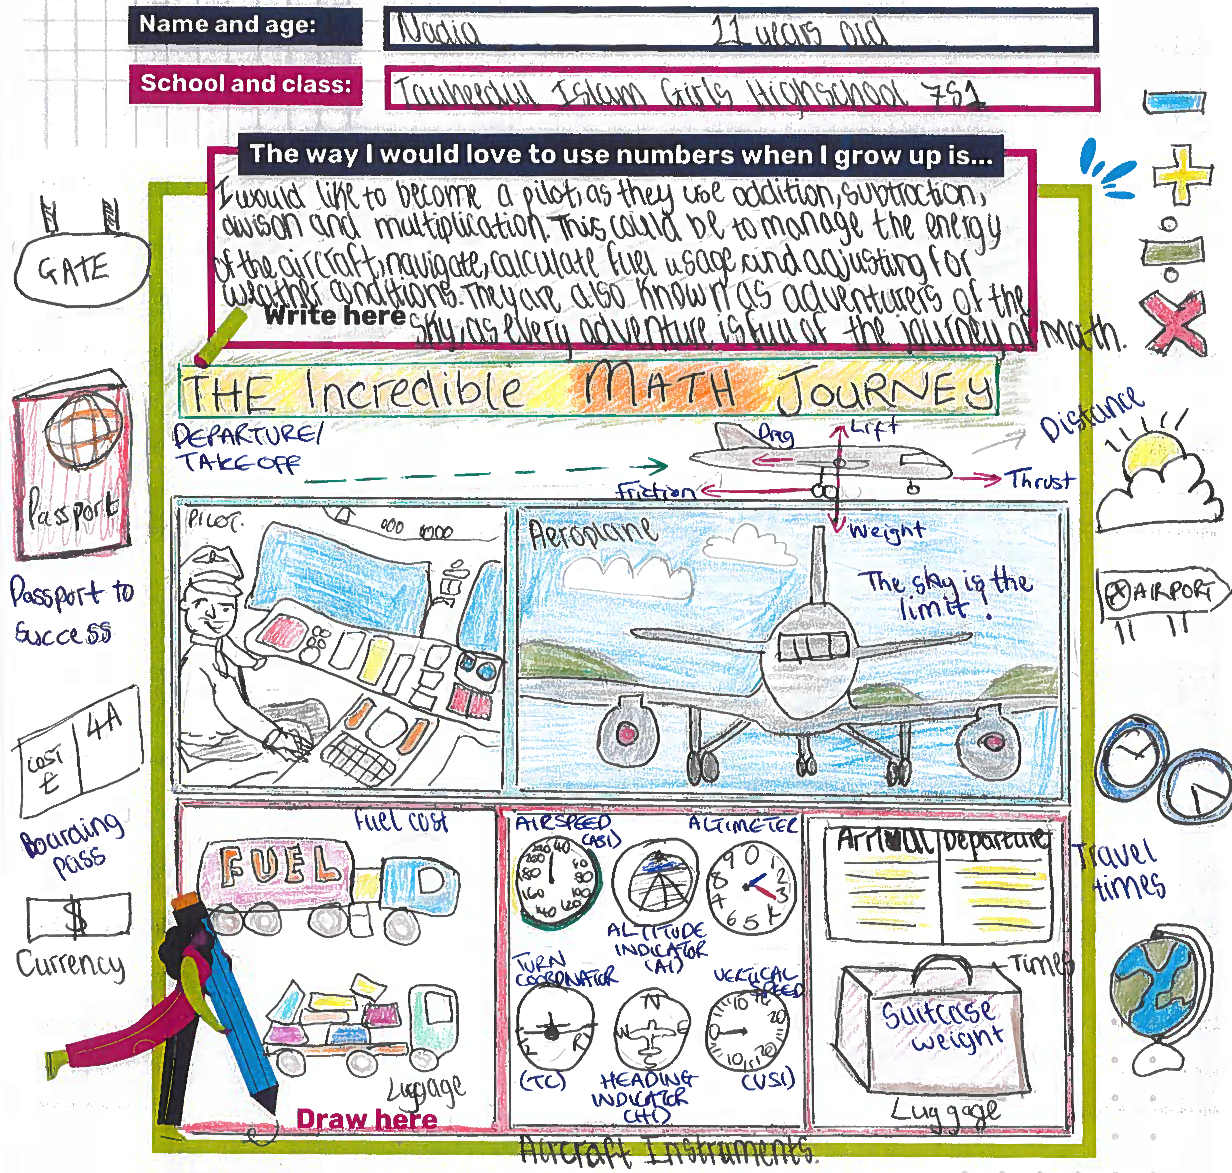 Name and age: Nadia 11 years old
School and class: Tauheedul Islam Girls Highschool 7S1
The way I would love to use numbers when I grow up is...
I would like to become a pilot, as they use addition, subtraction,
divison and multiplication. This could be to manage the energy
of the aircraft, navigate, calculate fuel usage and adjusting for
weather conditions. They are also known as adventurers of the
Write here
sky, as every adventure is full of the journey of math.
GATE
THE Incredible MATH JOURNEY
DEPARTURE/
TAKE OFF
Drag
Lift
Distance
Friction
Thrust
Weight
Passport
Passport to
Success
PILOT
Aeroplane
The sky is the
limit!
AIRPORT
COST
£
4A
Boarding
pass
$
Currency
Fuel cost
FUEL
Luggage
Draw here
AIRSPEED
(ASI)
ALTIMETER
ALTITUDE
INDICATOR
(AI)
TURN
COORDNATOR
(TC)
N
W
E
S
HEADING
INDICATOR
(HI)
VERTICAL
SPEED
(VSI)
Aircraft Instruments.
Arrival Departure
Times
Suitcase
weight
Luggage
Travel
times